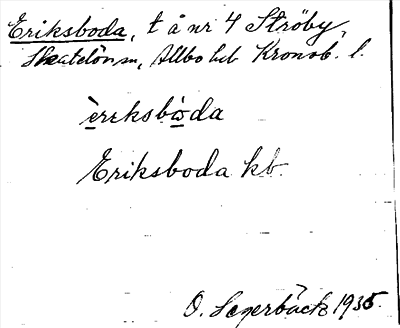 Eriksboda, t å nr 4 Ströby,
Skatelöv sn, Allbo hd Kronob. l.
èrıksbòda
Eriksboda kb.
O. Segerbäck 1935.